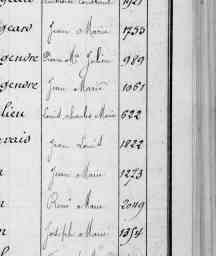 Jean Marie 1755
gendre Pierre Mie Julien 989
gendre Jean Marie 1061
lien Louis Charles Marie 622
vais
Jean Louis 1822
Jean Marie 1273
René Marie 2049
Joseph Marie 1354